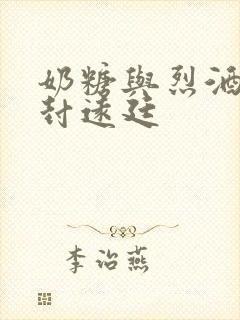 奶糖與烈酒
封遠廷
李治燕